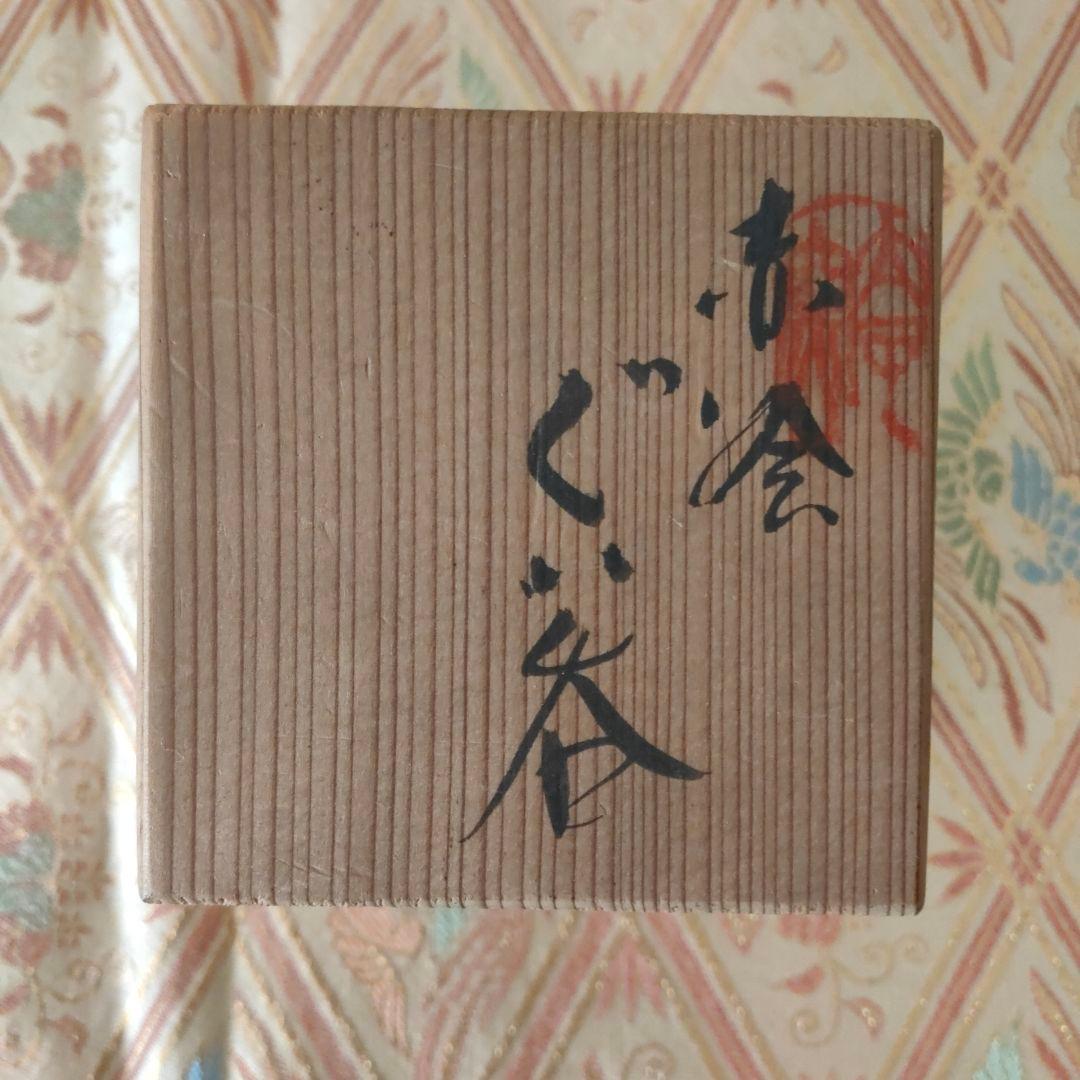 赤絵
ぐい呑